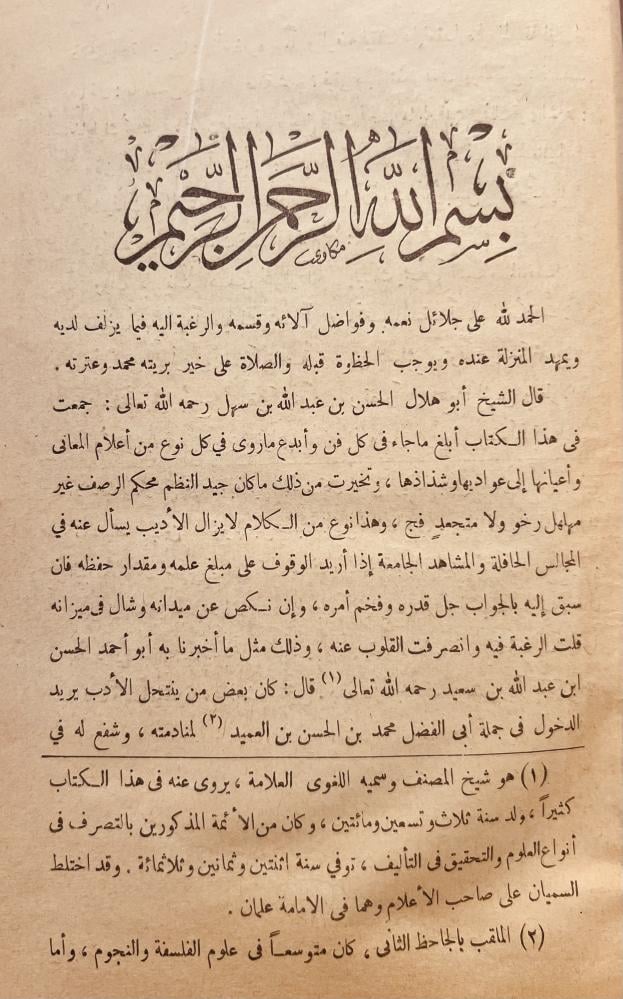 بسم الله الرحمن الرحيم
مكاوى
الحمد لله على جلائل نعمه وفواضل آلائه وقسمه والرغبة اليه فيما يزلف لديه
ويمهد المنزلة عنده ويوجب الحظوة قبله والصلاة على خير بريته محمد وعترته .
قال الشيخ أبو هلال الحسن بن عبد الله بن سهل رحمه الله تعالى : جمعت
فى هذا الكتاب أبلغ ماجاء فى كل فن وأبدع ماروى فى كل نوع من أعلام المعانى
وأعيانها إلى عواديها وشذاذها ، وتخيرت من ذلك ما كان جيد النظم محكم الرصف غير
مهلهل رخو ولا متجعد فج ، وهذا نوع من الكلام لايزال الأديب يسأل عنه في
المجالس الحافلة والمشاهد الجامعة إذا أريد الوقوف على مبلغ علمه ومقدار حفظه فان
سبق إليه بالجواب جل قدره وفخم أمره ، وإن نكص عن ميدانه وشال فى ميزانه
قلت الرغبة فيه وانصرفت القلوب عنه ، وذلك مثل ما أخبرنا به أبو أحمد الحسن
ابن عبد الله بن سعيد رحمه الله تعالى (١) قال : كان بعض من ينتحل الأدب يريد
الدخول فى جملة أبى الفضل محمد بن الحسن بن العميد (٢) لمنادمته ، وشفع له في
(١) هو شيخ المصنف وسميه اللغوى العلامة ، يروى عنه فى هذا الكتاب
كثيراً ، ولد سنة ثلاث وتسعين ومائتين ، وكان من الأئمة المذكورين بالتصرف فى
أنواع العلوم والتحقيق فى التأليف ، توفي سنة اثنتين وثمانين وثلاثمائة . وقد اختلط
السميان على صاحب الأعلام وهما فى الامامة علمان .
(٢) الملقب بالجاحظ الثانى ، كان متوسعاً فى علوم الفلسفة والنجوم ، وأما